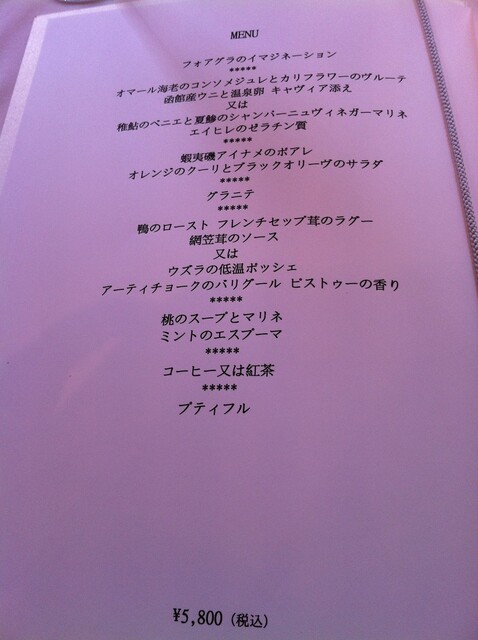 MENU
フォアグラのイマジネーション
*****
オマール海老のコンソメジュレとカリフラワーのヴルーテ
函館産ウニと温泉卵 キャヴィア添え
又は
稚鮎のベニエと夏鰺のシャンパーニュヴィネガーマリネ
エイヒレのゼラチン質
*****
蝦夷磯アイナメのポアレ
オレンジのクーリとブラックオリーヴのサラダ
*****
グラニテ
*****
鴨のロースト フレンチセップ茸のラグー
網笠茸のソース
又は
ウズラの低温ポッシェ
アーティチョークのバリグール ピストゥーの香り
*****
桃のスープとマリネ
ミントのエスプーマ
*****
コーヒー又は紅茶
*****
プティフル
¥5,800 (税込)